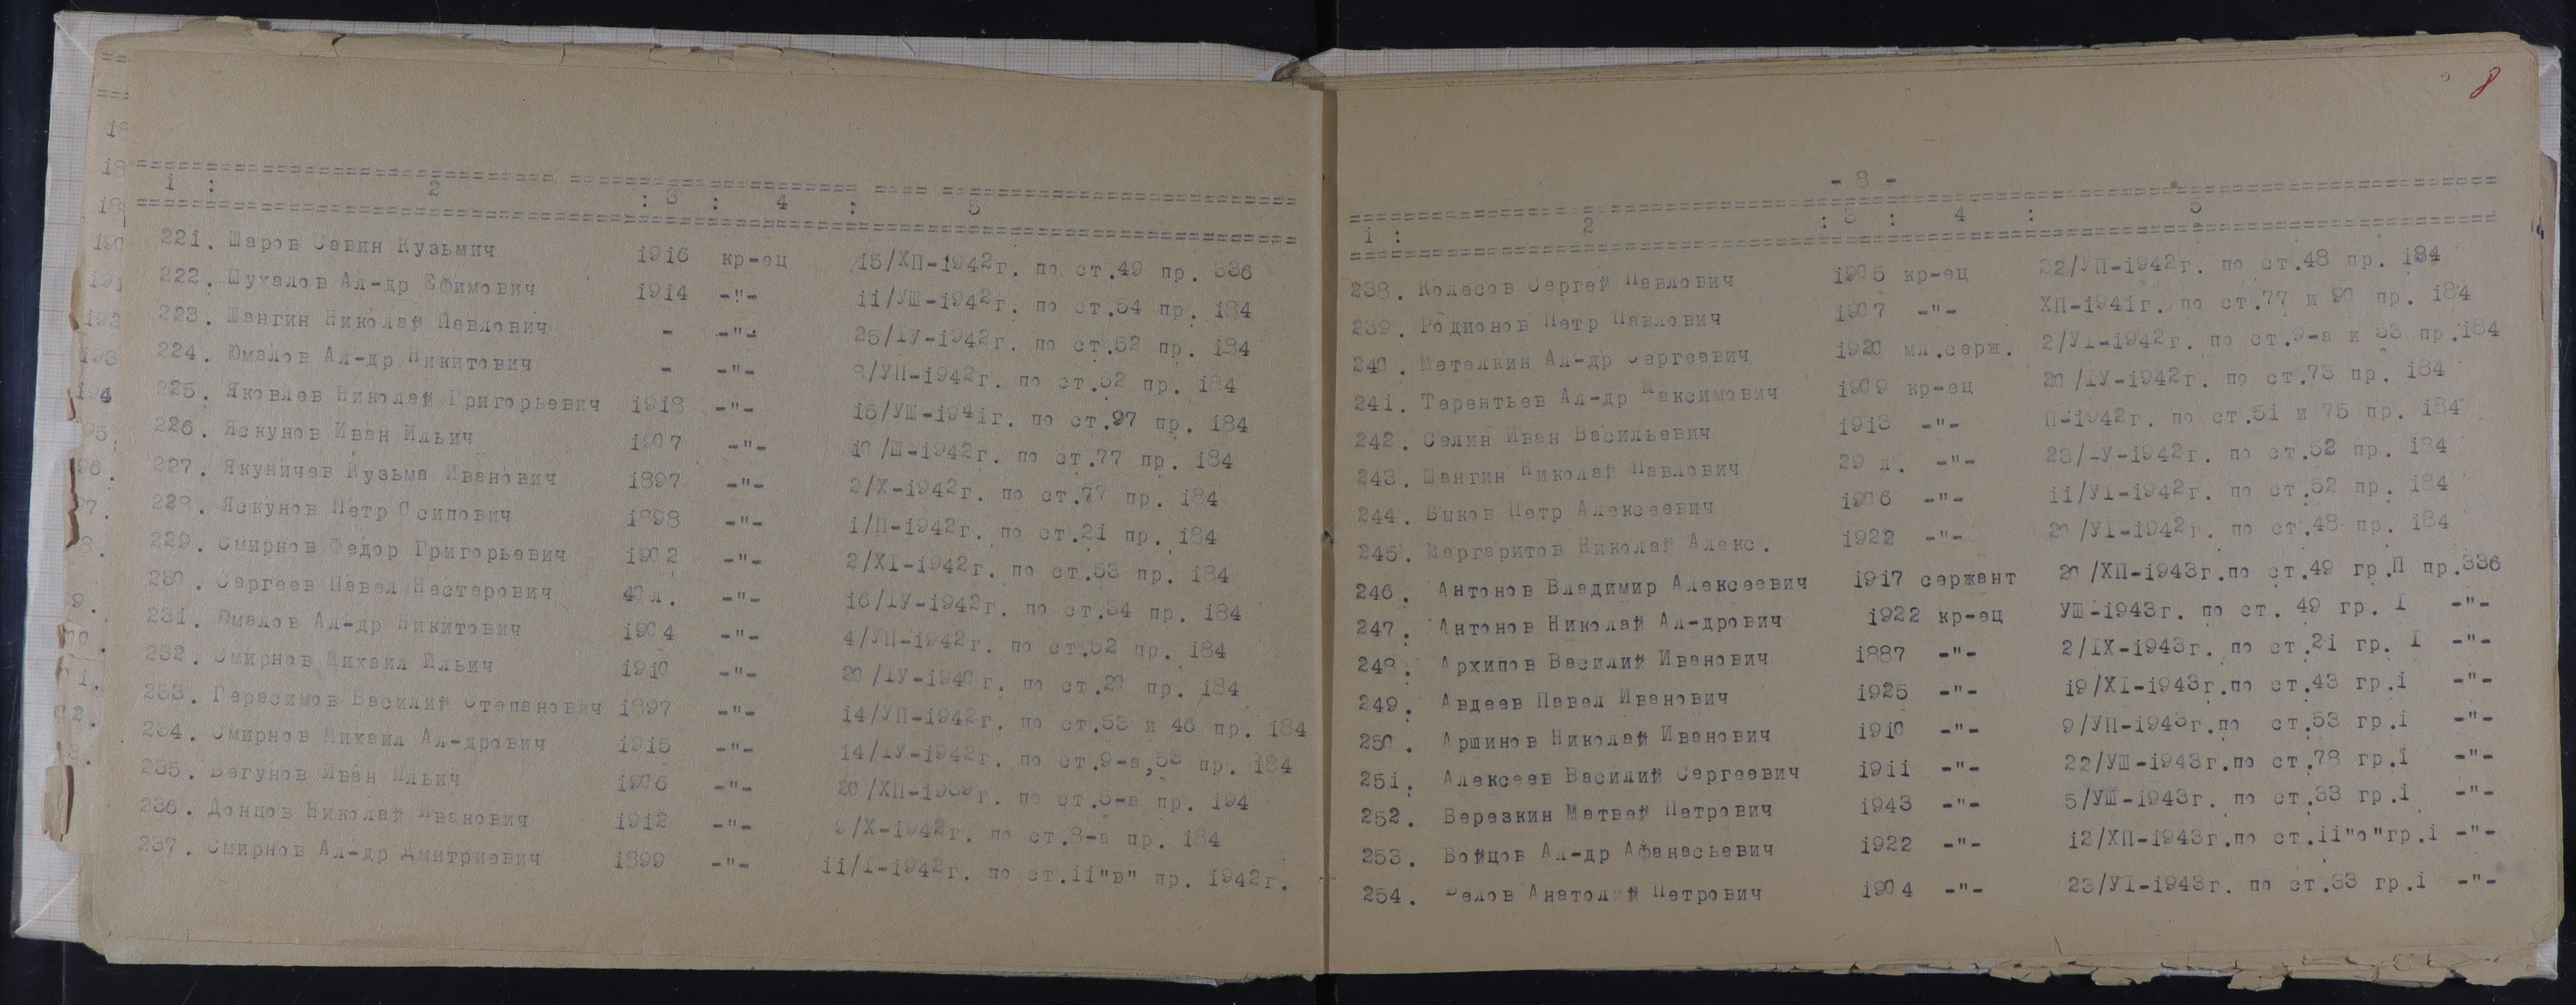 1 : 2 : 3 : 4 : 5
221. Шаров Савин Кузьмич 1916 кр-ец 15/ХП-1942г. по ст.49 пр. 336
222. Шухалов Ал-др Ефимович 1914 -"- 11/УШ-1942г. по ст.54 пр. 184
223. Шангин Николай Павлович - -"- 25/IУ-1942г. по ст.52 пр. 184
224. Юмалов Ал-др Никитович - -"- 8/УП-1942г. по ст.52 пр. 184
225. Яковлев Николай Григорьевич 1918 -"- 15/УШ-1941г. по ст.97 пр. 184
226. Яскунов Иван Ильич 1907 -"- 10/Ш-1942г. по ст.77 пр. 184
227. Якуничев Кузьма Иванович 1897 -"- 2/Х-1942г. по ст.77 пр. 184
228. Яскунов Петр Осипович 1898 -"- 1/П-1942г. по ст.21 пр. 184
229. Смирнов Федор Григорьевич 1902 -"- 2/ХI-1942г. по ст.53 пр. 184
230. Сергеев Павел Нестерович 40 л. -"- 16/IУ-1942г. по ст.34 пр. 184
231. Юмалов Ал-др Никитович 1904 -"- 4/УП-1942г. по ст.52 пр. 184
232. Смирнов Михаил Ильич 1910 -"- 20/IУ-1940г. по ст.20 пр. 184
233. Герасимов Василий Степанович 1897 -"- 14/УП-1942г. по ст.53 и 46 пр. 184
234. Смирнов Михаил Ал-дрович 1915 -"- 14/IУ-1942г. по ст.9-а,53 пр. 184
235. Бегунов Иван Ильич 1906 -"- 20/ХП-1939г. по ст.5-а пр. 194
236. Донцов Николай Иванович 1912 -"- 9/Х-1942г. по ст.8-а пр. 184
237. Смирнов Ал-др Дмитриевич 1899 -"- 11/I-1942г. по ст.11"в" пр. 1942г.
8
- 8 -
1 : 2 : 3 : 4 : 5
238. Колесов Сергей Павлович 1905 кр-ец 22/УП-1942г. по ст.48 пр. 184
239. Родионов Петр Павлович 1907 -"- ХП-1941г. по ст.77 и 90 пр. 184
240. Метелкин Ал-др Сергеевич 1920 мл.серж. 2/УI-1942г. по ст.9-а и 53 пр.184
241. Терентьев Ал-др Максимович 1909 кр-ец 20/IУ-1942г. по ст.73 пр. 184
242. Селин Иван Васильевич 1913 -"- П-1942г. по ст.51 и 75 пр. 184
243. Шангин Николай Павлович 29 л. -"- 23/IУ-1942г. по ст.52 пр. 184
244. Быков Петр Алексеевич 1906 -"- 11/УI-1942г. по ст.52 пр. 184
245. Маргаритов Николай Алекс. 1922 -"- 20/УI-1942г. по ст.48 пр. 184
246. Антонов Владимир Алексеевич 1917 сержант 20/ХП-1943г.по ст.49 гр.П пр.336
247. Антонов Николай Ал-дрович 1922 кр-ец УШ-1943г. по ст. 49 гр. I -"-
248. Архипов Василий Иванович 1887 -"- 2/IХ-1943г. по ст.21 гр. I -"-
249. Авдеев Павел Иванович 1925 -"- 19/ХI-1943г.по ст.43 гр.1 -"-
250. Аршинов Николай Иванович 1910 -"- 9/УП-1943г.по ст.53 гр.1 -"-
251. Алексеев Василий Сергеевич 1911 -"- 22/УШ-1943г.по ст.78 гр.1 -"-
252. Березкин Матвей Петрович 1943 -"- 5/УШ-1943г. по ст.33 гр.1 -"-
253. Бойцов Ал-др Афанасьевич 1922 -"- 12/ХП-1943г.по ст.11"о"гр.1 -"-
254. Белов Анатолий Петрович 1904 -"- 23/УI-1943г. по ст.33 гр.1 -"-